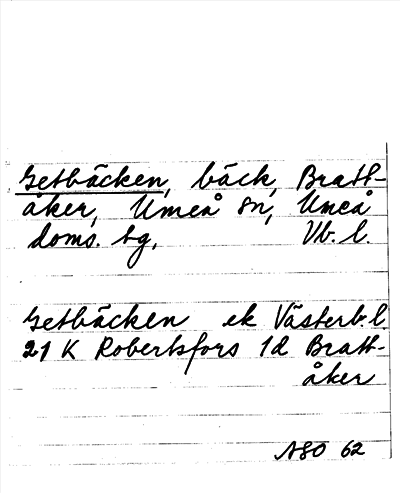 Getbäcken, bäck, Bratt-
åker, Umeå sn, Umeå
doms. tg, Vb. l.
Getbäcken ek Västerb. l.
21 K Robertsfors 1d Bratt-
åker
ASO 62